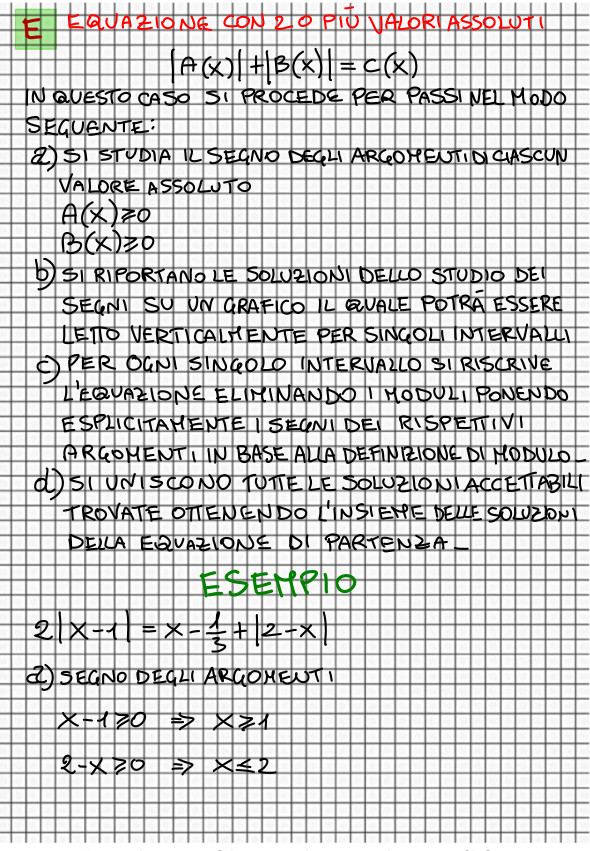 E EQUAZIONE CON 2 O PIÚ VALORI ASSOLUTI
|A(x)|+|B(x)|=C(x)
IN QUESTO CASO SI PROCEDE PER PASSI NEL MODO
SEGUENTE:
a) SI STUDIA IL SEGNO DEGLI ARGOMENTI DI CIASCUN
VALORE ASSOLUTO
A(x)⩾0
B(x)⩾0
b) SI RIPORTANO LE SOLUZIONI DELLO STUDIO DEI
SEGNI SU UN GRAFICO IL QUALE POTRÁ ESSERE
LETTO VERTICALMENTE PER SINGOLI INTERVALLI
c) PER OGNI SINGOLO INTERVALLO SI RISCRIVE
L'EQUAZIONE ELIMINANDO I MODULI PONENDO
ESPLICITAMENTE I SEGNI DEI RISPETTIVI
ARGOMENTI IN BASE ALLA DEFINIZIONE DI MODULO_
d) SI UNISCONO TUTTE LE SOLUZIONI ACCETTABILI
TROVATE OTTENENDO L'INSIEME DELLE SOLUZIONI
DELLA EQUAZIONE DI PARTENZA_
ESEMPIO
2|x-1|=x-1/3+|2-x|
a) SEGNO DEGLI ARGOMENTI
x-1⩾0 ⇒ x⩾1
2-x⩾0 ⇒ x≤2